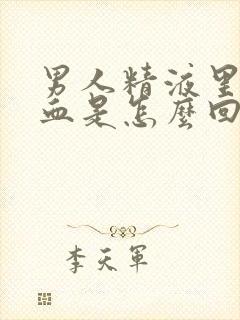 男人精液里
血是怎麼回
李天軍